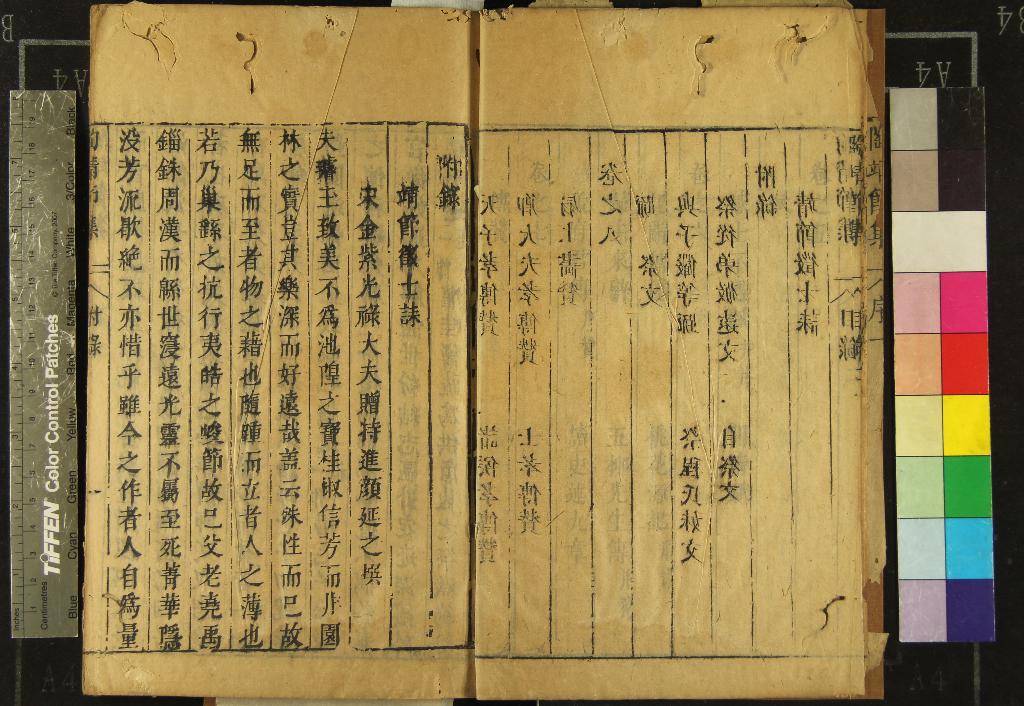 天子孝傳贊 諸侯孝傳贊
卿大夫孝傳贊 士孝傳贊
扇上畫贊
卷之八
疏 祭文
與子儼等疏 祭程氏妹文
祭從弟敬遠文 自祭文
附錄
靖節徵士誄
附錄
靖節徵士誄
宋金紫光祿大夫贈特進顏延之撰
夫璿玉致美不為池隍之寶桂椒信芳而非園
林之實豈其樂深而好遠哉蓋云殊性而已故
無足而至者物之藉也隨踵而立者人之薄也
若乃巢繇之抗行夷皓之峻節故已父老堯禹
錙銖周漢而緜世寖遠光靈不屬至死菁華隱
没芳流歇絕不亦惜乎雖今之作者人自為量
附錄
TIFFEN Color Control Patches
© The Tiffen Company, 2007
Blue Cyan Green Yellow Red Magenta White 3/Color Black
Inches
Centimetres
A4
A4
A4
A4
B